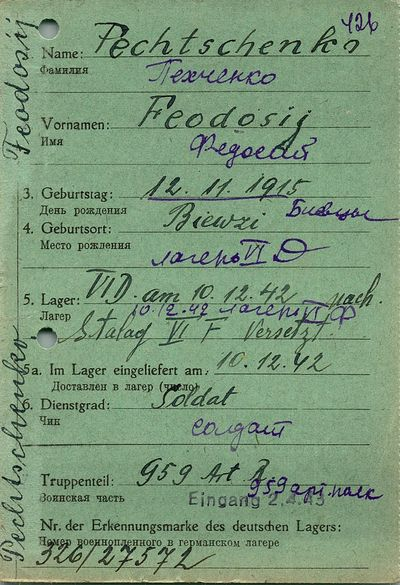 426
Name: Pechtschenko
Фамилия Пехченко
Vornamen: Feodosij
Имя Федосий
3. Geburtstag: 12. 11. 1915
День рождения
4. Geburtsort: Biewzi Биевцы
Место рождения лагерь VI D
5. Lager: VI D. am 10.12.42 nach
Лагерь 10.12.42 лагерь VI Ф
Stalag VI F versetzt.
5a. Im Lager eingeliefert am 10.12.42
Доставлен в лагерь (число)
6. Dienstgrad: Soldat
Чин солдат
Truppenteil: 959 Art. R.
Воинская часть 959 арт. полк
Eingang 2.4.43
Nr. der Erkennungsmarke des deutschen Lagers:
Номер военнопленного в германском лагере
326/27572
Pechtschenko Feodosij